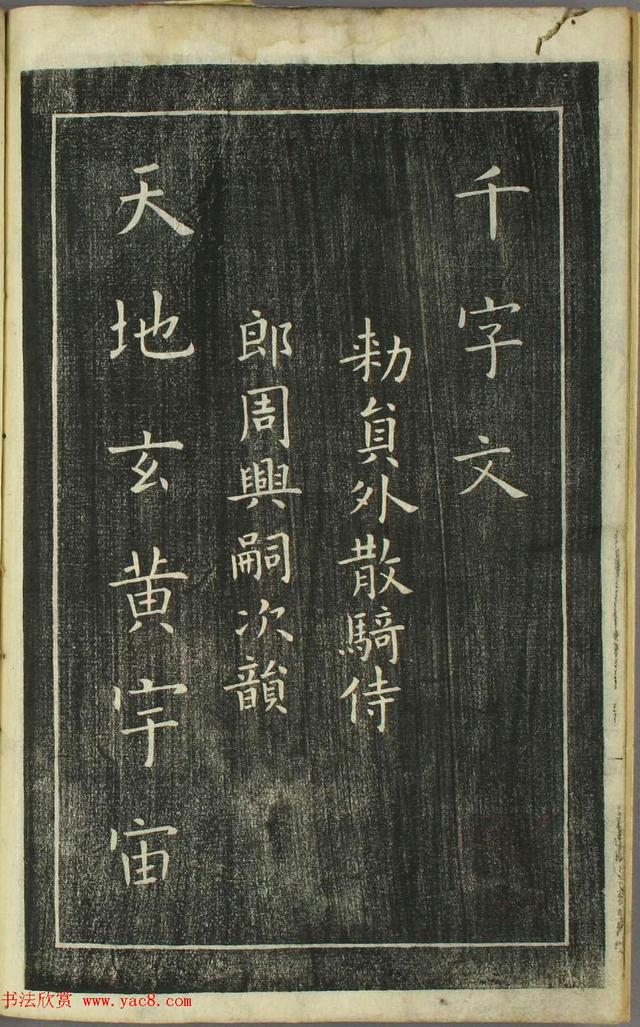 千字文
勅貟外散騎侍
郎周興嗣次韻
天地玄黄宇宙
书法欣赏 www.yac8.com